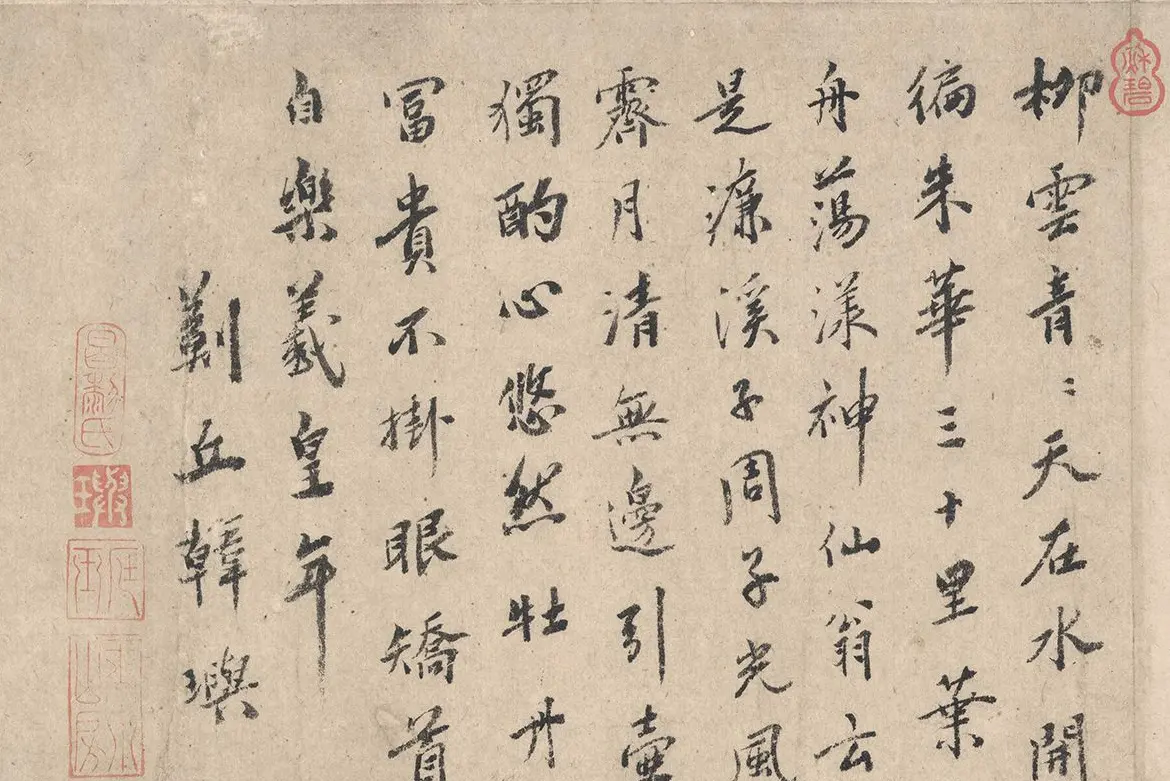 柳雲青〻天在水開
徧朱華三十里葉
舟蕩漾神仙翁云
是濂溪子周子光風
霽月清無邊引壺
獨酌心悠然牡丹
冨貴不掛眼矯首
自樂羲皇年
薊丘韓璵